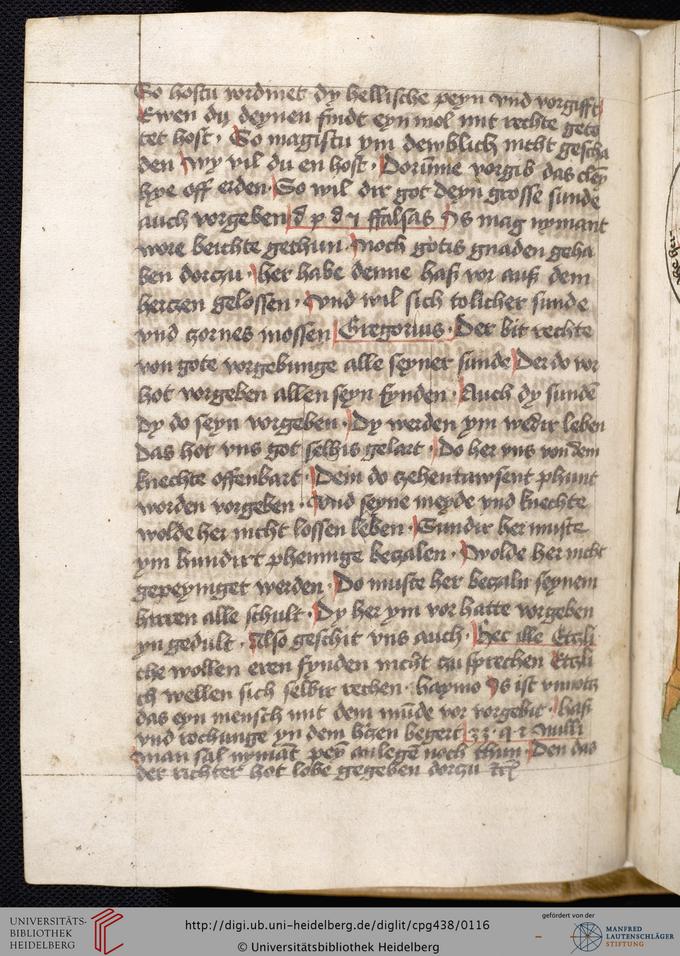 So hostu vordinet dy hellische peyn vnd vorgifft
Ewen du deynen findt eyn mol mit rechte geto
tet host · So magistu ym dewblich nicht gescha
den Wy vil du en host · Dorume vorgib das
hye off erden · So wil dir got deyn grosse sunde
auch vorgeben d p d i ffalsas Is mag nymant
wore beichte gethun · Noch gotis gnaden geha
ben dorczu · her habe denne haß vor auß dem
herczen gelossen · Vnd wil sich tolicher sunde
vnd czornes mossen Gregorius · Der bit rechte
von gote vorgebunge alle seyner sunde Der do vor
hot vorgeben allen seyn fynden · Auch dy sunde
dy do seyn vorgeben · Dy werden ym wedir leben
das hot vns got selbis gelart · Do her vns von dem
knechte offenbart · Dem do czehentawsent phunt
worden vorgeben · Vnd seyne meyde vnd knechte
wolde her nicht lossen leben · Sundir her muste
ym hundirt phennige beczalen · Wolde her nicht
gepeyniget werden · Do muste her beczaln seynem
herren alle schult · Dy her ym vor hatte vorgeben
yn gedult · Also geschit vns auch · hec ille Etczli
che wollen eren fynden nicht czu sprechen Etczli
ch wellen sich selbir rechen · haymo Is ist vnnotz
das eyn mensch mit dem mude vor vorgebit · haß
vnd rochunge yn dem hczen begert 23 · q · 1 Nulli
man sal nymat peyn anlege noch thun · Den das
der richter hot lobe gegeben dorczu
UNIVERSITÄTS-
BIBLIOTHEK
HEIDELBERG
http://digi.ub.uni-heidelberg.de/diglit/cpg438/0116
© Universitätsbibliothek Heidelberg
gefördert von der
MANFRED
LAUTENSCHLÄGER
STIFTUNG